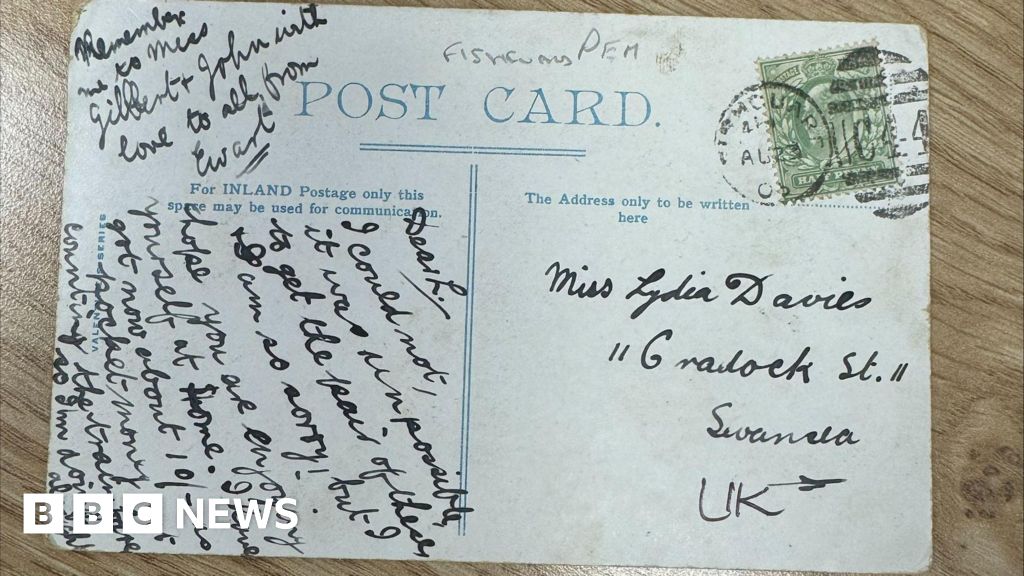 Remember
me to Miss
Gilbert + John with
love to all from
Ewart
PEM
POST CARD.
For INLAND Postage only this
space may be used for communication.
The Address only to be written
here
Dear L.
I could not,
it was unpossible,
to get the pair of these
but I
am so sorry!
hope you are enjoying
yourself at home. I have
got now about 10/- as
pocket-money
counting the train
so I'm doing
Miss Lydia Davies
11 Cradock St.
Swansea
UK
AU
03
BBC NEWS